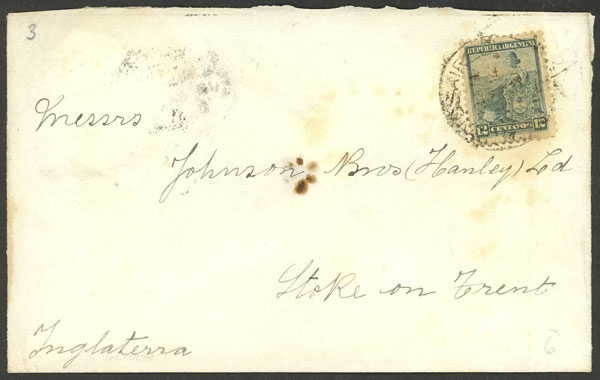 3
REPUBLICA ARGENTINA
12 CENTAVOS 12
Messrs
Johnson Bros (Hanley) Ld
Stoke on Trent
Inglaterra
6